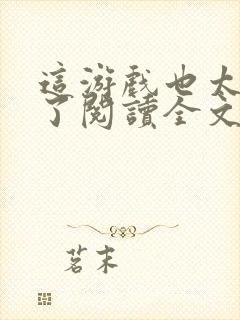 這游戲也太
了閱讀全文
茗末